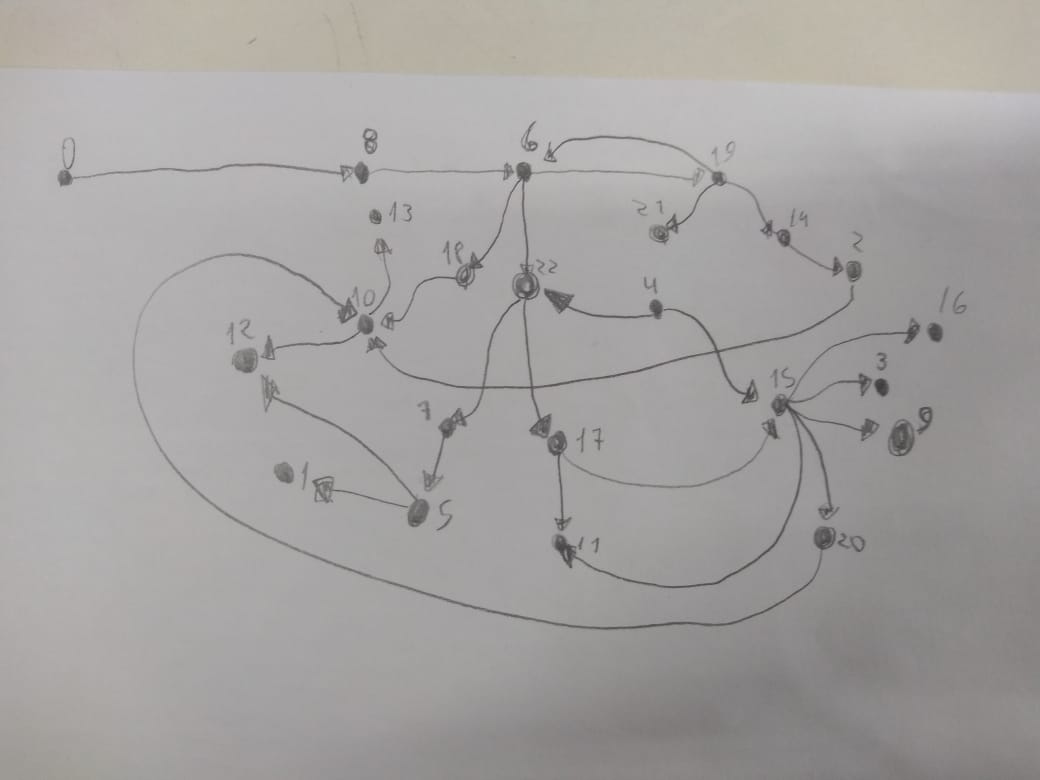 0
8
6
19
13
21
14
2
18
22
4
10
16
12
3
15
7
9
17
1
5
11
20